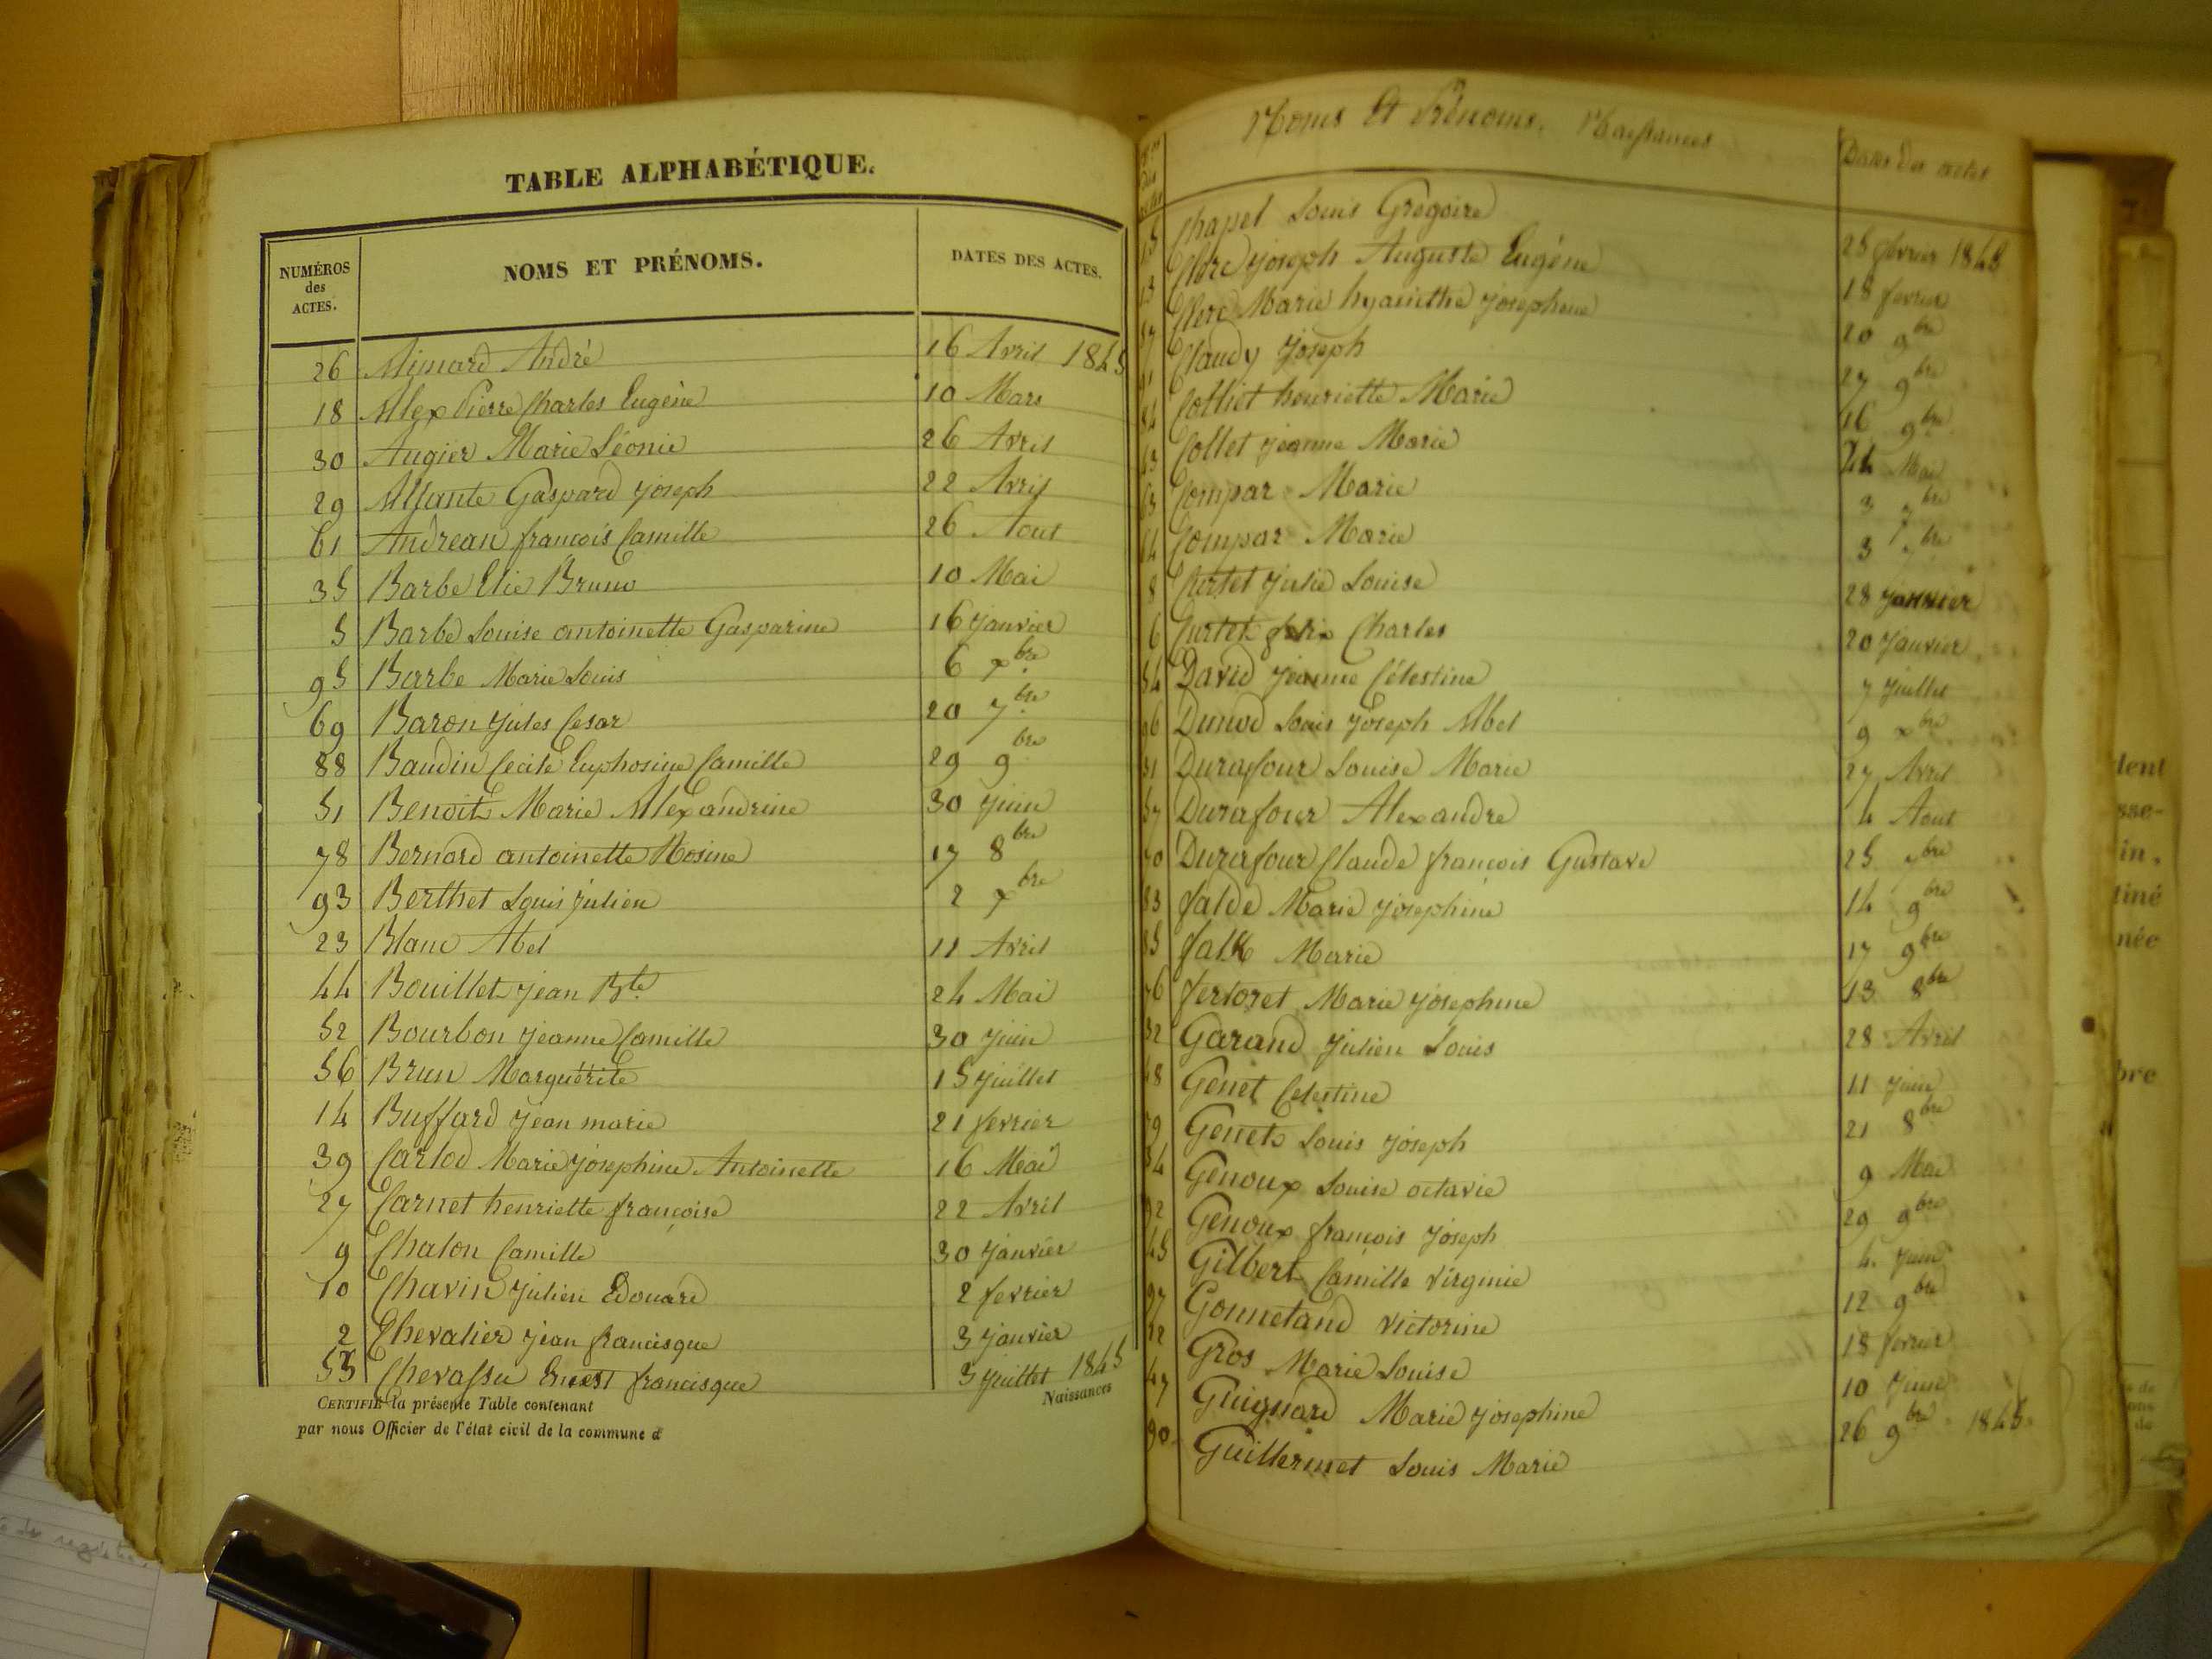 TABLE ALPHABÉTIQUE.
NUMÉROS des ACTES. NOMS ET PRÉNOMS. DATES DES ACTES.
26 Aimard André 16 Avril 1845
18 Alex Pierre Charles Eugène 10 Mars
30 Augier Marie Léonie 26 Avril
29 Allante Gaspard joseph 22 Avril
61 Andrean françois Camille 26 Aout
35 Barbe Elie Bruno 10 Mai
5 Barbe Louise antoinette Gasparine 16 janvier
95 Barbe Marie Louis 6 xbre
69 Baron Jules Cesar 20 7bre
88 Baudin Cecile Euphosine Camille 29 9bre
51 Benoit Marie Alexandrine 30 juin
78 Bernard antoinette Rosine 17 8bre
93 Berthet Louis julien 2 xbre
23 Blanc Abel 11 Avril
44 Bouillet jean Bte 24 Mai
52 Bourbon jeanne Camille 30 juin
56 Brun Marguérite 15 juillet
14 Buffard jean marie 21 fevrier
39 Carlod Marie josephine Antoinette 16 Mai
27 Carnet henriette françoise 22 Avril
9 Chalon Camille 30 janvier
10 Chavin julien Edouard 2 fevrier
2 Chevalier jean francisque 3 janvier
53 Chevassu Ernest francisque 3 juillet 1845
Naissances
CERTIFIÉ la présente Table contenant
par nous Officier de l'état civil de la commune d
Noms et Prénoms. Naissances Dates des actes
Chapel Louis Grégoire 25 fevrier 1845
Clerc joseph Auguste Eugène 18 fevrier
Clerc Marie hyacinthe josephine 20 9bre
Claudy Joseph 27 9bre
Colliet henriette Marie 16 9bre
Collet jeanne Marie 24 Mai
Compar Marie 3 7bre
Compar Marie 3 7bre
8 Curtet julie Louise 28 janvier
6 Curtet felix Charles 20 janvier
54 David jeanne Célestine 7 juillet
96 Dunod Louis joseph Abel 9 xbre
31 Durafour Louise Marie 27 Avril
57 Durafour Alexandre 4 Aout
70 Durafour Claude françois Gustave 25 7bre
83 falde Marie josephine 14 9bre
85 falk Marie 17 9bre
76 fertoret Marie josephine 13 8bre
32 Garand Julien Louis 28 Avril
48 Genet Celestine 11 juin
79 Genet Louis joseph 21 8bre
34 Genoux Louise octavie 9 Mai
92 Genoux françois joseph 29 9bre
45 Gilbert Camille virginie 4 juin
Gonnetand victorine 12 9bre
12 Gros Marie Louise 18 fevrier
47 Guignard Marie josephine 10 juin
90 Guillermet Louis Marie 26 9bre 1845